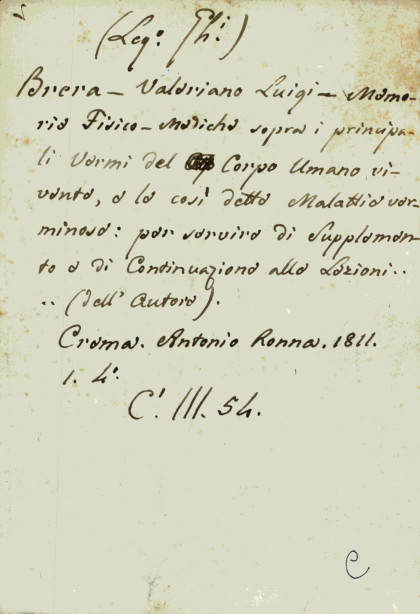 (Leg.º Gh.i)
Brera – Valeriano Luigi – Memo-
rie Fisico – Mediche sopra i principa-
li Vermi del Corpo Umano vi-
vente, e le così dette Malattie ver-
minose: per servire di Supplemen-
to e di Continuazione alle Lezioni..
.. (dell' Autore).
Crema. Antonio Ronna. 1811.
1. 4º.
C! III. 54.
C